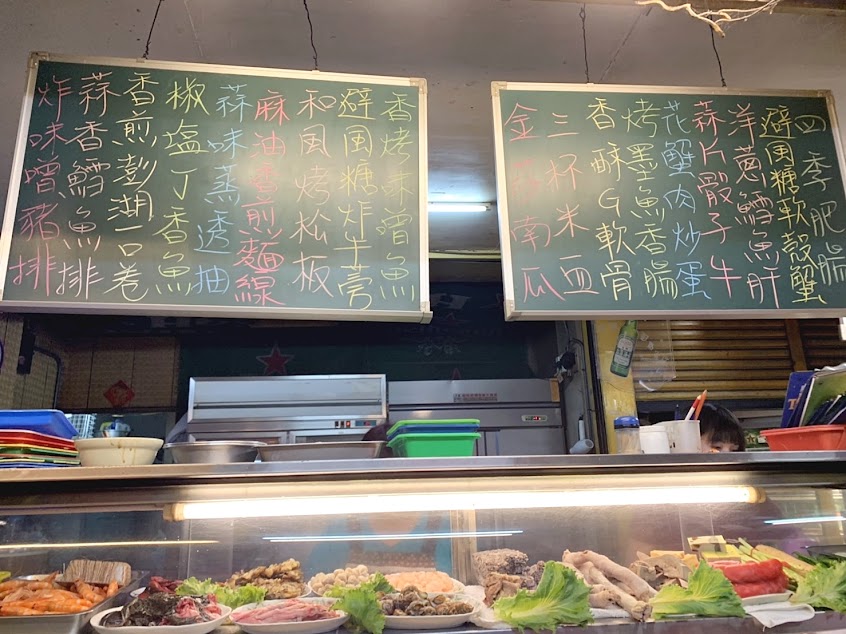 四季肥腸
避風糖軟殼蟹
洋蔥鱈魚肝
蒜片骰子牛
花蟹肉炒蛋
烤墨魚香腸
香酥G軟骨
三杯米血
金南瓜
香烤味噌魚
避風糖炸牛蒡
和風烤松板
麻油香煎麵線
蒜味蒸透抽
椒塩丁香魚
香煎澎湖一口卷
蒜香鱈魚排
炸味噌豬排